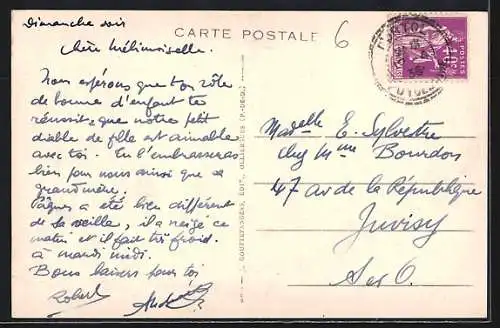 Dimanche soir
CARTE POSTALE
6
Chère Mélimoiselle.
Nous espérons que ton rôle
de bonne d'enfant te
réussit, que notre petit
diable de fille est aimable
avec toi. Tu l'embrasseras
bien pour nous ainsi que sa
grand'mère.
Pâques a été bien différent
de sa veille, il a neigé ce
matin et il fait très froid.
à mardi midi.
Bons baisers pour toi
Robert
Madelle E. Sylvestre
chez Mme Bourdon
47 av de la République
Juvisy
S et O.
POSTES